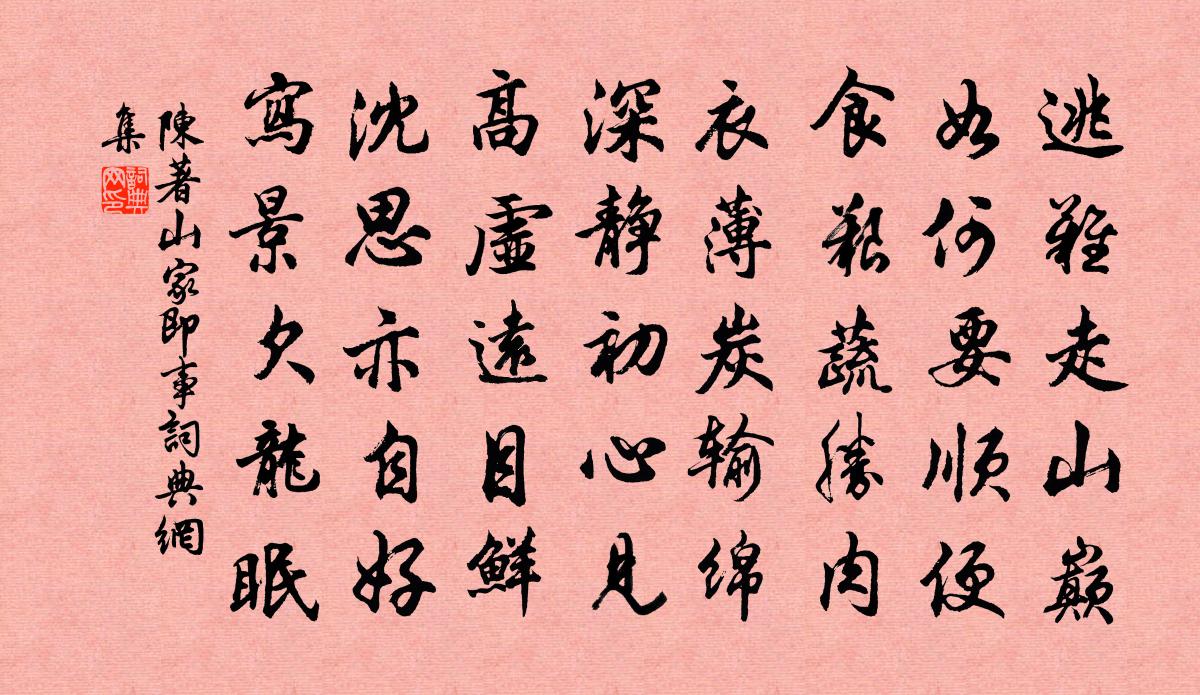 逃難走山巔
如何要順便
食艱蔬勝肉
衣薄炭输绵
深靜初心見
高虛遠目鮮
沈思亦自好
寫景欠龍眠
陳著山家即事詞典網
集
詞典网印